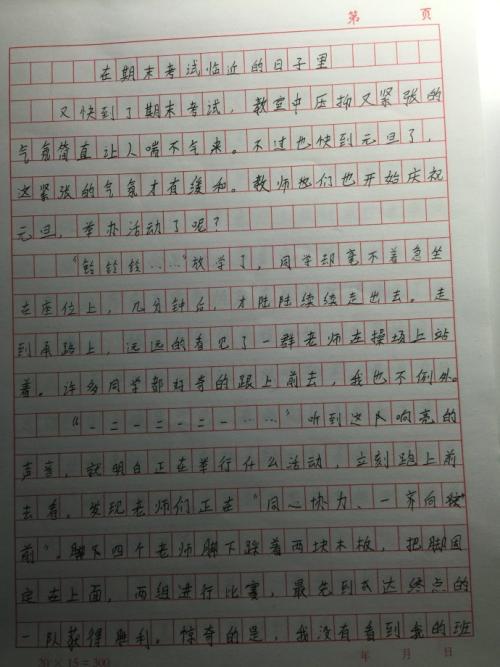 第 页
在期末考试临近的日子里
又快到了期末考试，教室中压抑又紧张的
气氛简直让人喘不气来。不过也快到元旦了，
这紧张的气氛才有缓和。教师他们也开始庆祝
元旦，举办活动了呢？
“铃铃铃……”放学了，同学却毫不着急坐
在座位上，几分钟后，才陆陆续续走出去。走
到甬路上，远远的看见了一群老师在操场上站
着。许多同学都好奇的跟上前去，我也不例外。
“一二一二一二一……”听到这响亮的
声音，就明白正在举行什么活动，立刻跑上前
去看。发现老师们正在“同心协力、一齐向
前”，四个老师脚下踩着两块木板，把脚固
定在上面，两组进行比赛，最先到达终点的
一队获得胜利。惊奇的是，我没有看到我的班
20×15=300 年 月 日